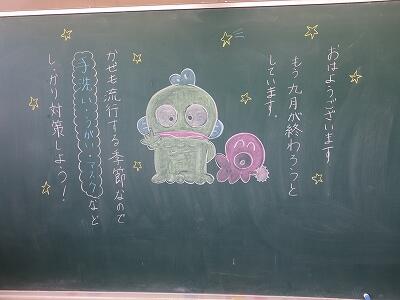 おはようございます
もう九月が終わろうと
しています。
かぜも流行する季節なので
手洗い・うがい・マスクなど
しっかり対策しよう！